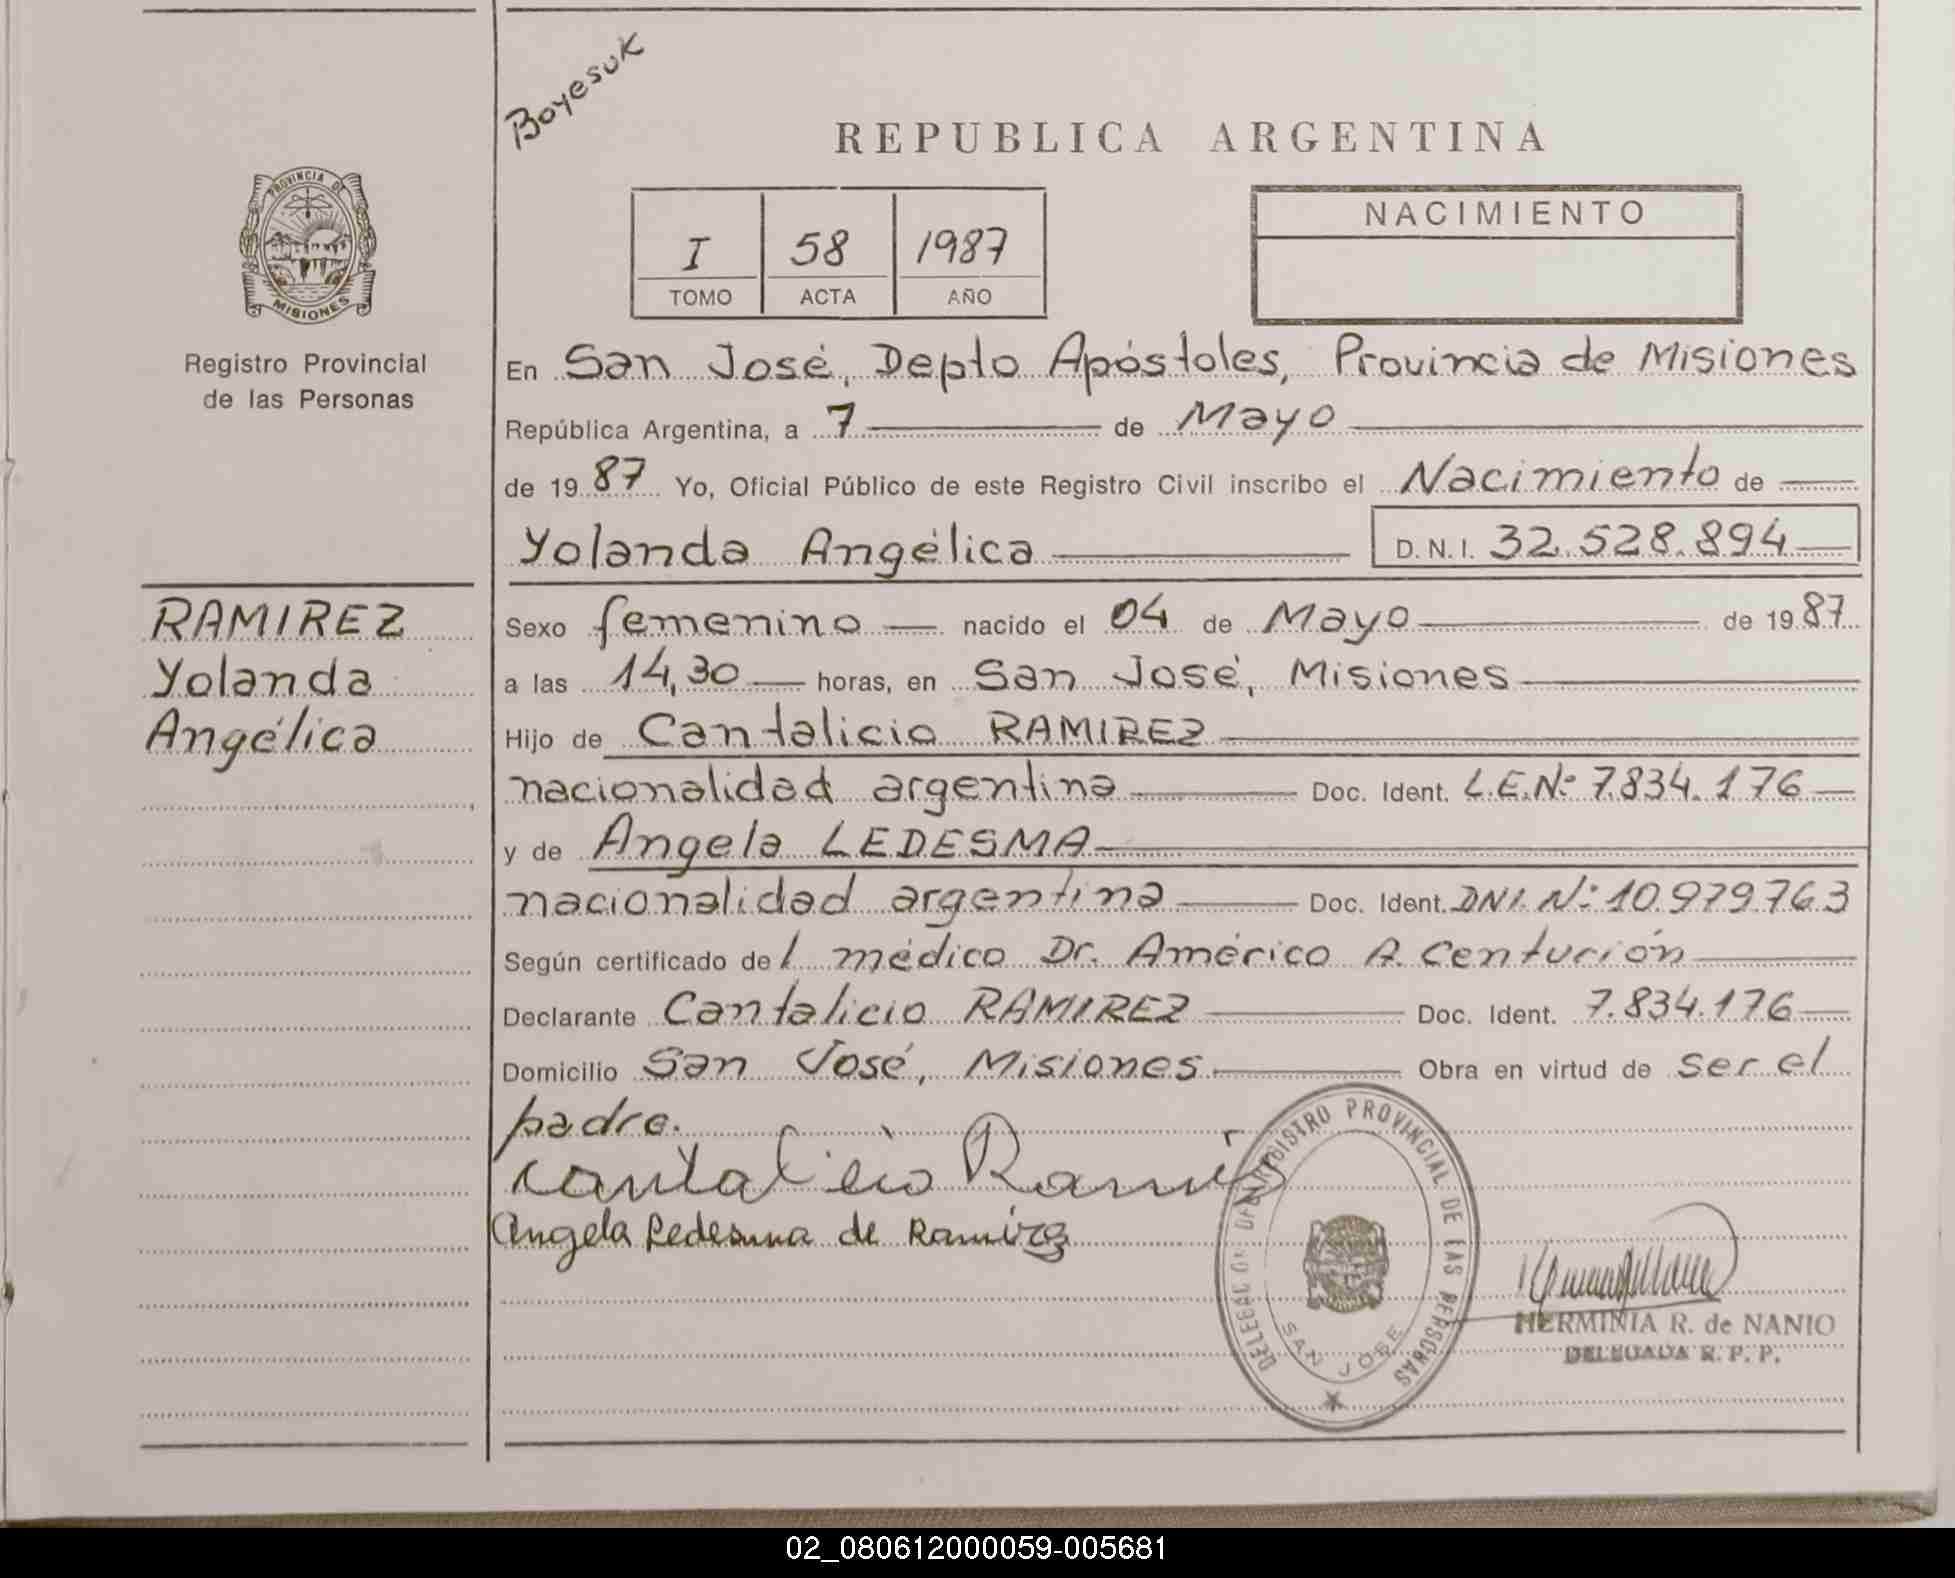 Boyesuk
REPUBLICA ARGENTINA
PROVINCIA DE
MISIONES
I 58 1987
TOMO ACTA AÑO
NACIMIENTO
Registro Provincial
de las Personas
En San José, Depto Apóstoles, Provincia de Misiones
República Argentina, a 7 de Mayo
de 1987 Yo, Oficial Público de este Registro Civil inscribo el Nacimiento de
Yolanda Angélica D.N.I. 32.528.894
RAMIREZ
Yolanda
Angélica
Sexo femenino nacido el 04 de Mayo de 1987
a las 14,30 horas, en San José, Misiones
Hijo de Cantalicio RAMIREZ
nacionalidad argentina Doc. Ident. L.E.Nº 7.834.176
y de Angela LEDESMA
nacionalidad argentina Doc. Ident. DNI. Nº 10.979.763
Según certificado del médico Dr. Américo A. Centurión
Declarante Cantalicio RAMIREZ Doc. Ident. 7.834.176
Domicilio San José, Misiones Obra en virtud de ser el
padre.
Cantalicio Ramires
Angela Ledesma de Ramirez
REGISTRO PROVINCIAL DE LAS PERSONAS
SAN JOSE
HERMINIA R. de NANIO
DELEGADA R. P. P.
02_080612000059-005681